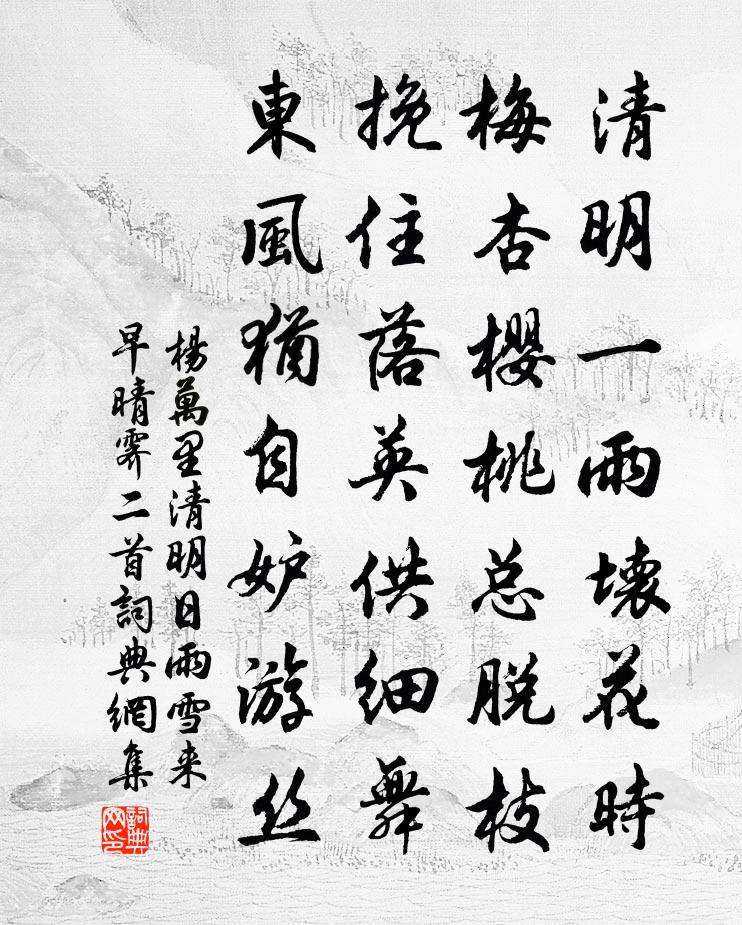 清明一雨壊花時
梅杏櫻桃总脱枝
挽住落英供细舞
東風猶自妒游丝
楊萬里清明日雨雪来
早晴霁二首詞典網集
詞典
网印